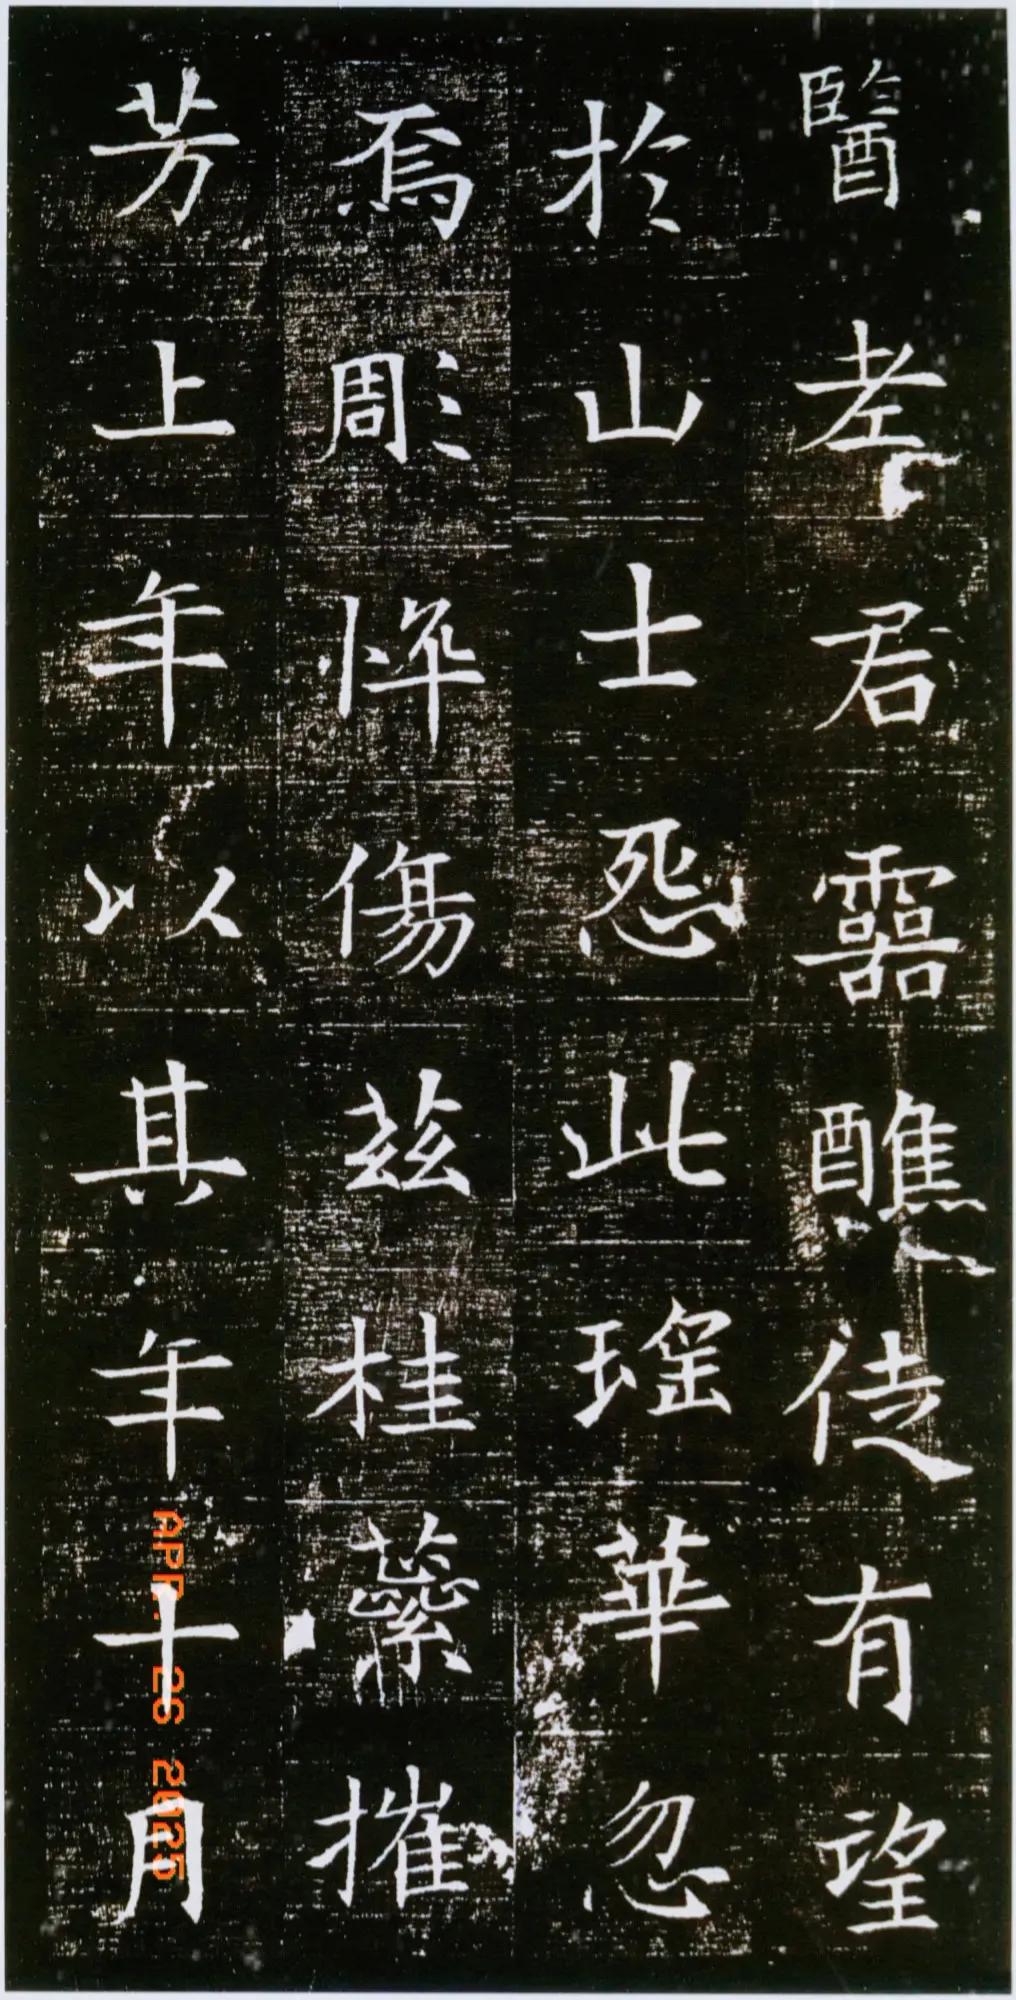 醫老君靈醮徒有望
於山士怨此瑤華忽
焉彫悴傷茲桂蘂摧
芳上年以其年十月
APR. 26 2025